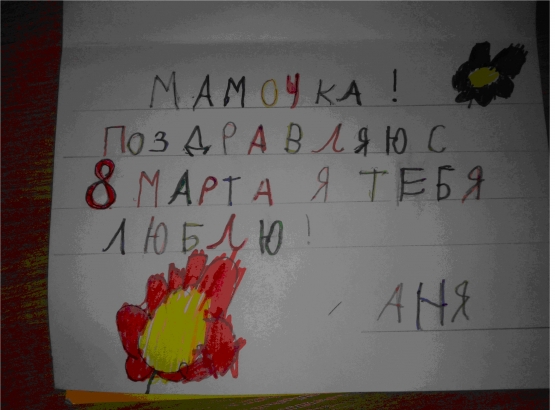 МАМОЧКА !
ПОЗДРАВЛЯЮ С
8 МАРТА Я ТЕБЯ
ЛЮБЛЮ !
АНЯ